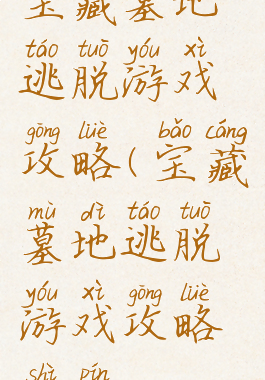 宝藏墓地
táo tuō yóu xì
逃脱游戏
gōng lüè bǎo cáng
攻略(宝藏
mù dì táo tuō
墓地逃脱
yóu xì gōng lüè
游戏攻略
shì pín